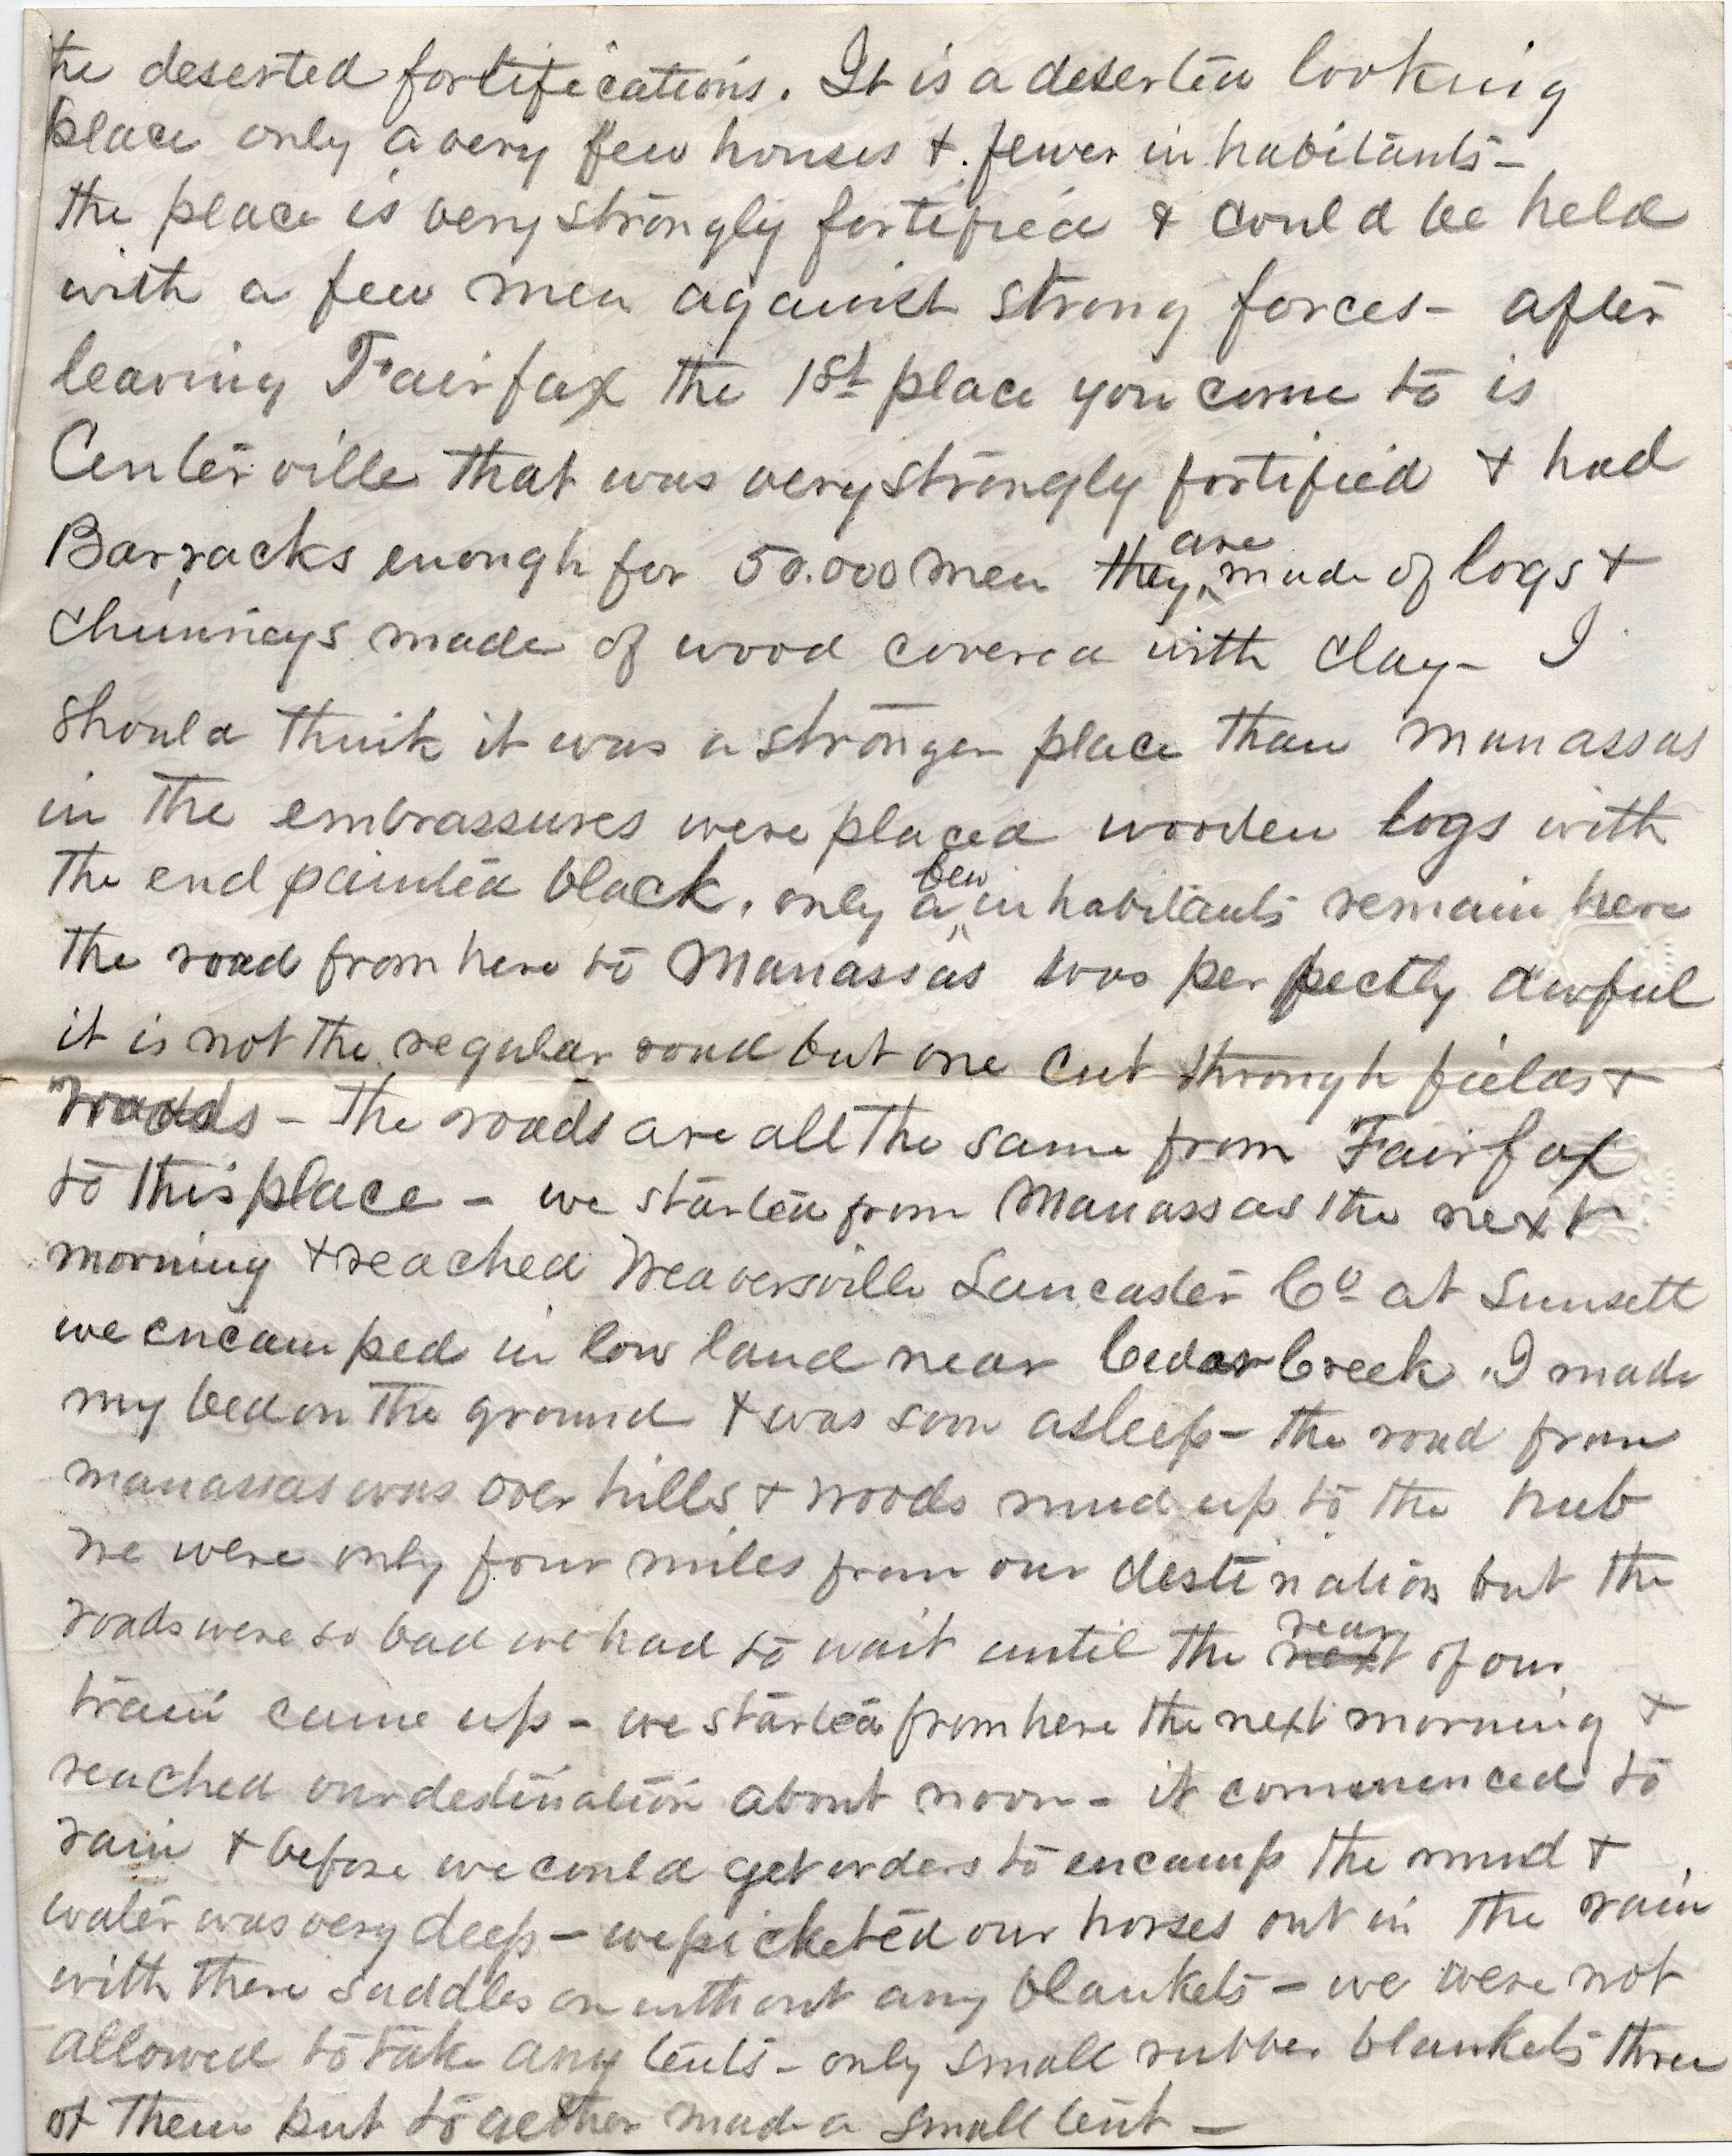 the deserted fortifications. It is a deserted looking
place only a very few houses & fewer inhabitants -
the place is very strongly fortified & could be held
with a few men against strong forces - after
leaving Fairfax the 1st place you come to is
Centerville that was very strongly fortified & had
Barracks enough for 50.000 men they are made of logs &
chimneys made of wood covered with clay - I
should think it was a stronger place than Manassas
in the embrassures were placed wooden logs with
the end painted black. only a few inhabitants remain here
the road from here to Manassas was perfectly awful
it is not the regular road but one cut through fields &
woods - the roads are all the same from Fairfax
to this place - we started from Manassas the next
morning & reached Weaversville Lancaster Co at Sunsett
we encamped in low land near Cedar Creek. I made
my bed on the ground & was soon asleep - the road from
manassas was over hills & woods mud up to the hub
we were only four miles from our destination but the
roads were so bad we had to wait until the rear of our
train came up - we started from here the next morning &
reached our destination about noon - it commenced to
rain & before we could get orders to encamp the mud &
water was very deep - we picketed our horses out in the rain
with there saddles on without any blankets - we were not
allowed to take any tents - only small rubber blankets three
of them put together made a small tent -